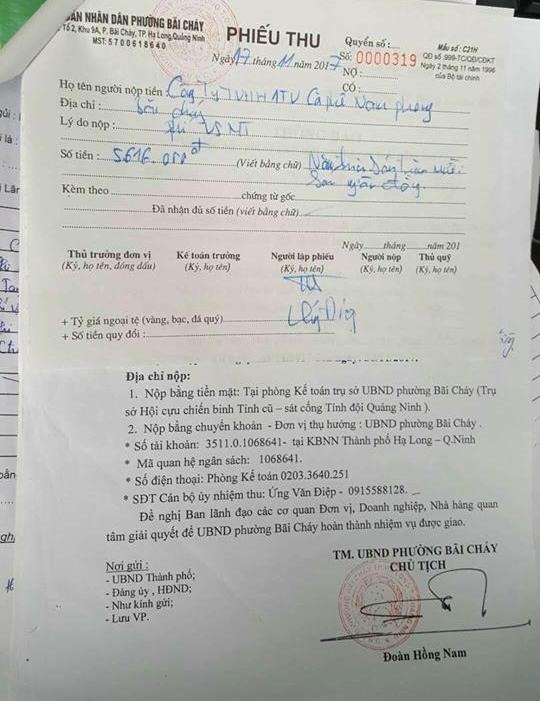 ỦY BAN NHÂN DÂN PHƯỜNG BÃI CHÁY
Tổ 2, Khu 9A, P. Bãi Cháy, TP. Hạ Long, Quảng Ninh
MST: 5700618640
PHIẾU THU
Ngày 17 tháng 11 năm 2017
Quyển số:
Số: 0000319
NỢ:
CÓ:
Mẫu số: C21H
QĐ số: 999-TC/QĐ/CĐKT
Ngày 2 tháng 11 năm 1996
của Bộ tài chính
Họ tên người nộp tiền: Công Ty TNHH MTV Cà phê Nam phong
Địa chỉ: Bãi cháy
Lý do nộp: phí VSMT
Số tiền: 5.616.000đ (Viết bằng chữ) Năm triệu Sáu trăm mười
Sáu ngàn đồng
Kèm theo chứng từ gốc
Đã nhận đủ số tiền (viết bằng chữ)
Ngày tháng năm 201
Thủ trưởng đơn vị
(Ký, họ tên, đóng dấu)
Kế toán trưởng
(Ký, họ tên)
Người lập phiếu
(Ký, họ tên)
Người nộp
(Ký, họ tên)
Thủ quỹ
(Ký, họ tên)
+ Tỷ giá ngoại tệ (vàng, bạc, đá quý)
+ Số tiền quy đổi:
Địa chỉ nộp:
1. Nộp bằng tiền mặt: Tại phòng Kế toán trụ sở UBND phường Bãi Cháy (Trụ
sở Hội cựu chiến binh Tỉnh cũ – sát cổng Tỉnh đội Quảng Ninh ).
2. Nộp bằng chuyển khoản - Đơn vị thụ hưởng : UBND phường Bãi Cháy .
* Số tài khoản: 3511.0.1068641- tại KBNN Thành phố Hạ Long – Q.Ninh
* Mã quan hệ ngân sách: 1068641.
* Số điện thoại: Phòng Kế toán 0203.3640.251
* SĐT Cán bộ ủy nhiệm thu: Ứng Văn Điệp - 0915588128.
Đề nghị Ban lãnh đạo các cơ quan Đơn vị, Doanh nghiệp, Nhà hàng quan
tâm giải quyết để UBND phường Bãi Cháy hoàn thành nhiệm vụ được giao.
Nơi gửi :
- UBND Thành phố;
- Đảng ủy , HĐND;
- Như kính gửi;
- Lưu VP.
TM. UBND PHƯỜNG BÃI CHÁY
CHỦ TỊCH
Đoàn Hồng Nam